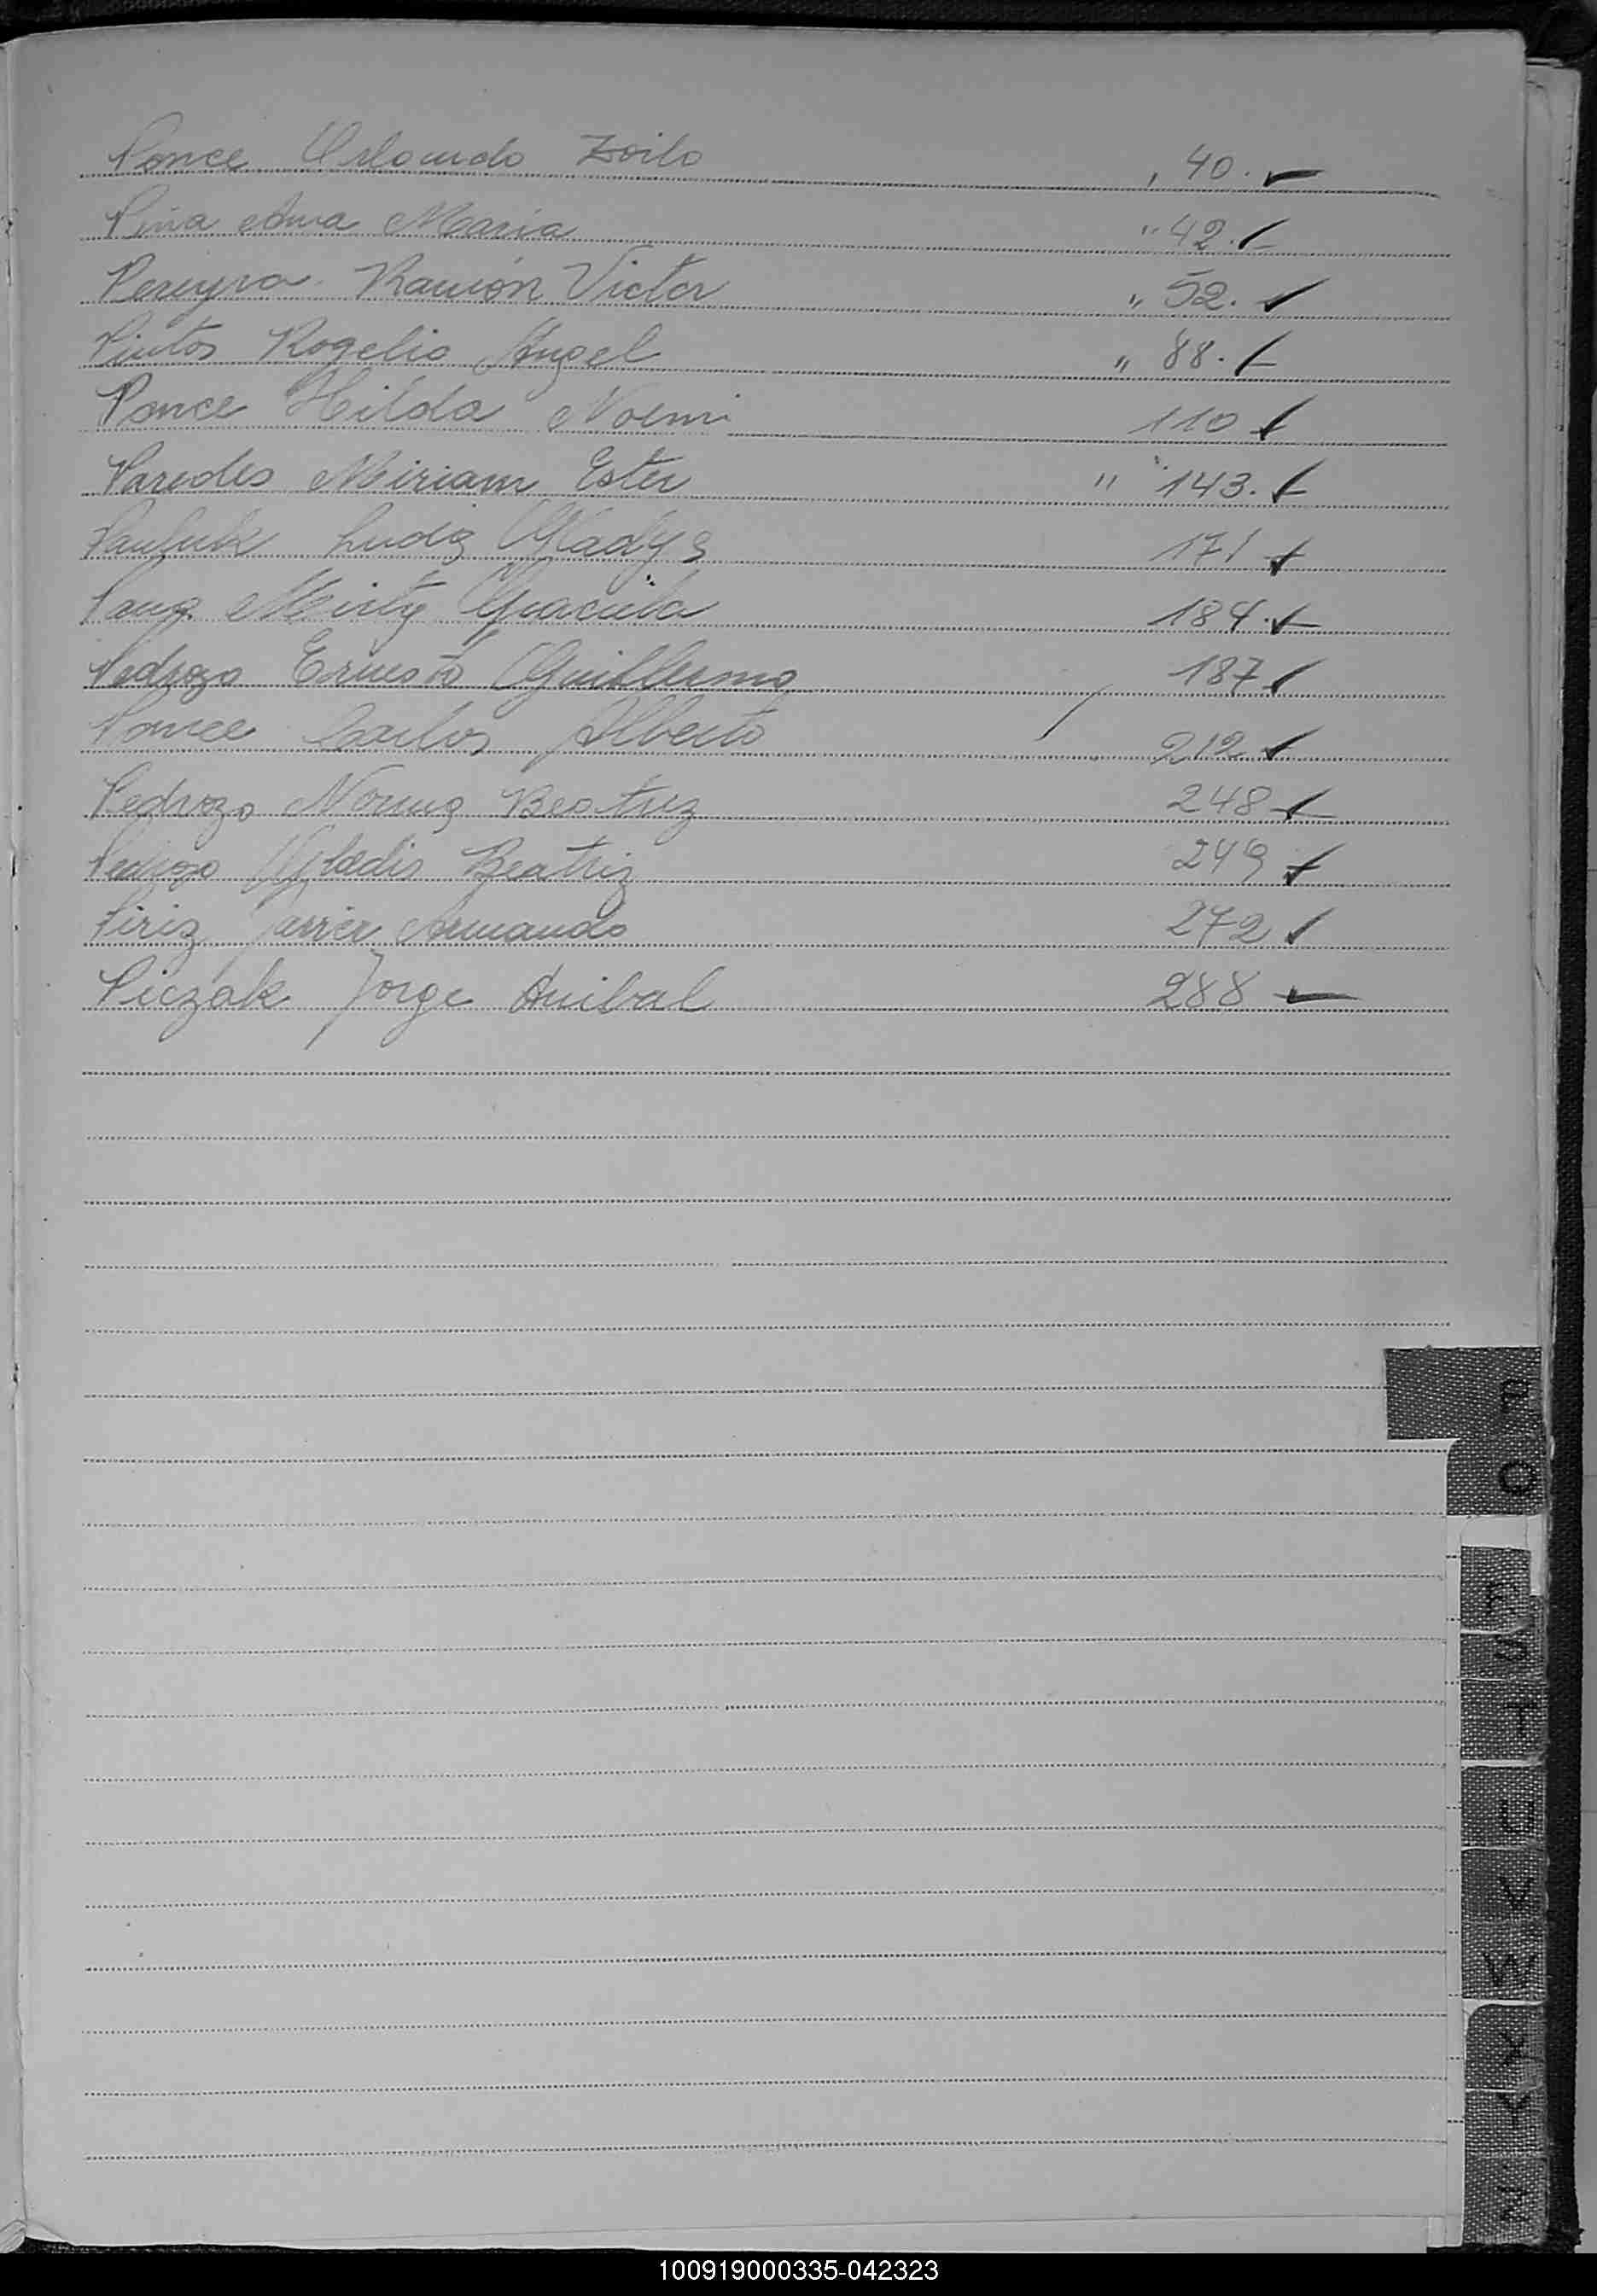 Ponce Orlando Zoilo , 40.
Pina Ana Maria " 42.
Pereyra Ramón Victor " 52.
Pintos Rogelio Angel " 88.
Ponce Hilda Noemi 110
Paredes Miriam Ester " 143.
Pauluk Lidia Gladys 171
Mirty Graciela 184.
Pedrozo Ernesto Guillermo 187
Ponce Carlos Alberto 212
Pedrozo Norma Beatriz 248
Pedrozo Gladis Beatriz 249
Piriz Javier Armando 272
Piczak Jorge Anibal 288
O
S
T
U
V
W
X
Y
Z
100919000335-042323